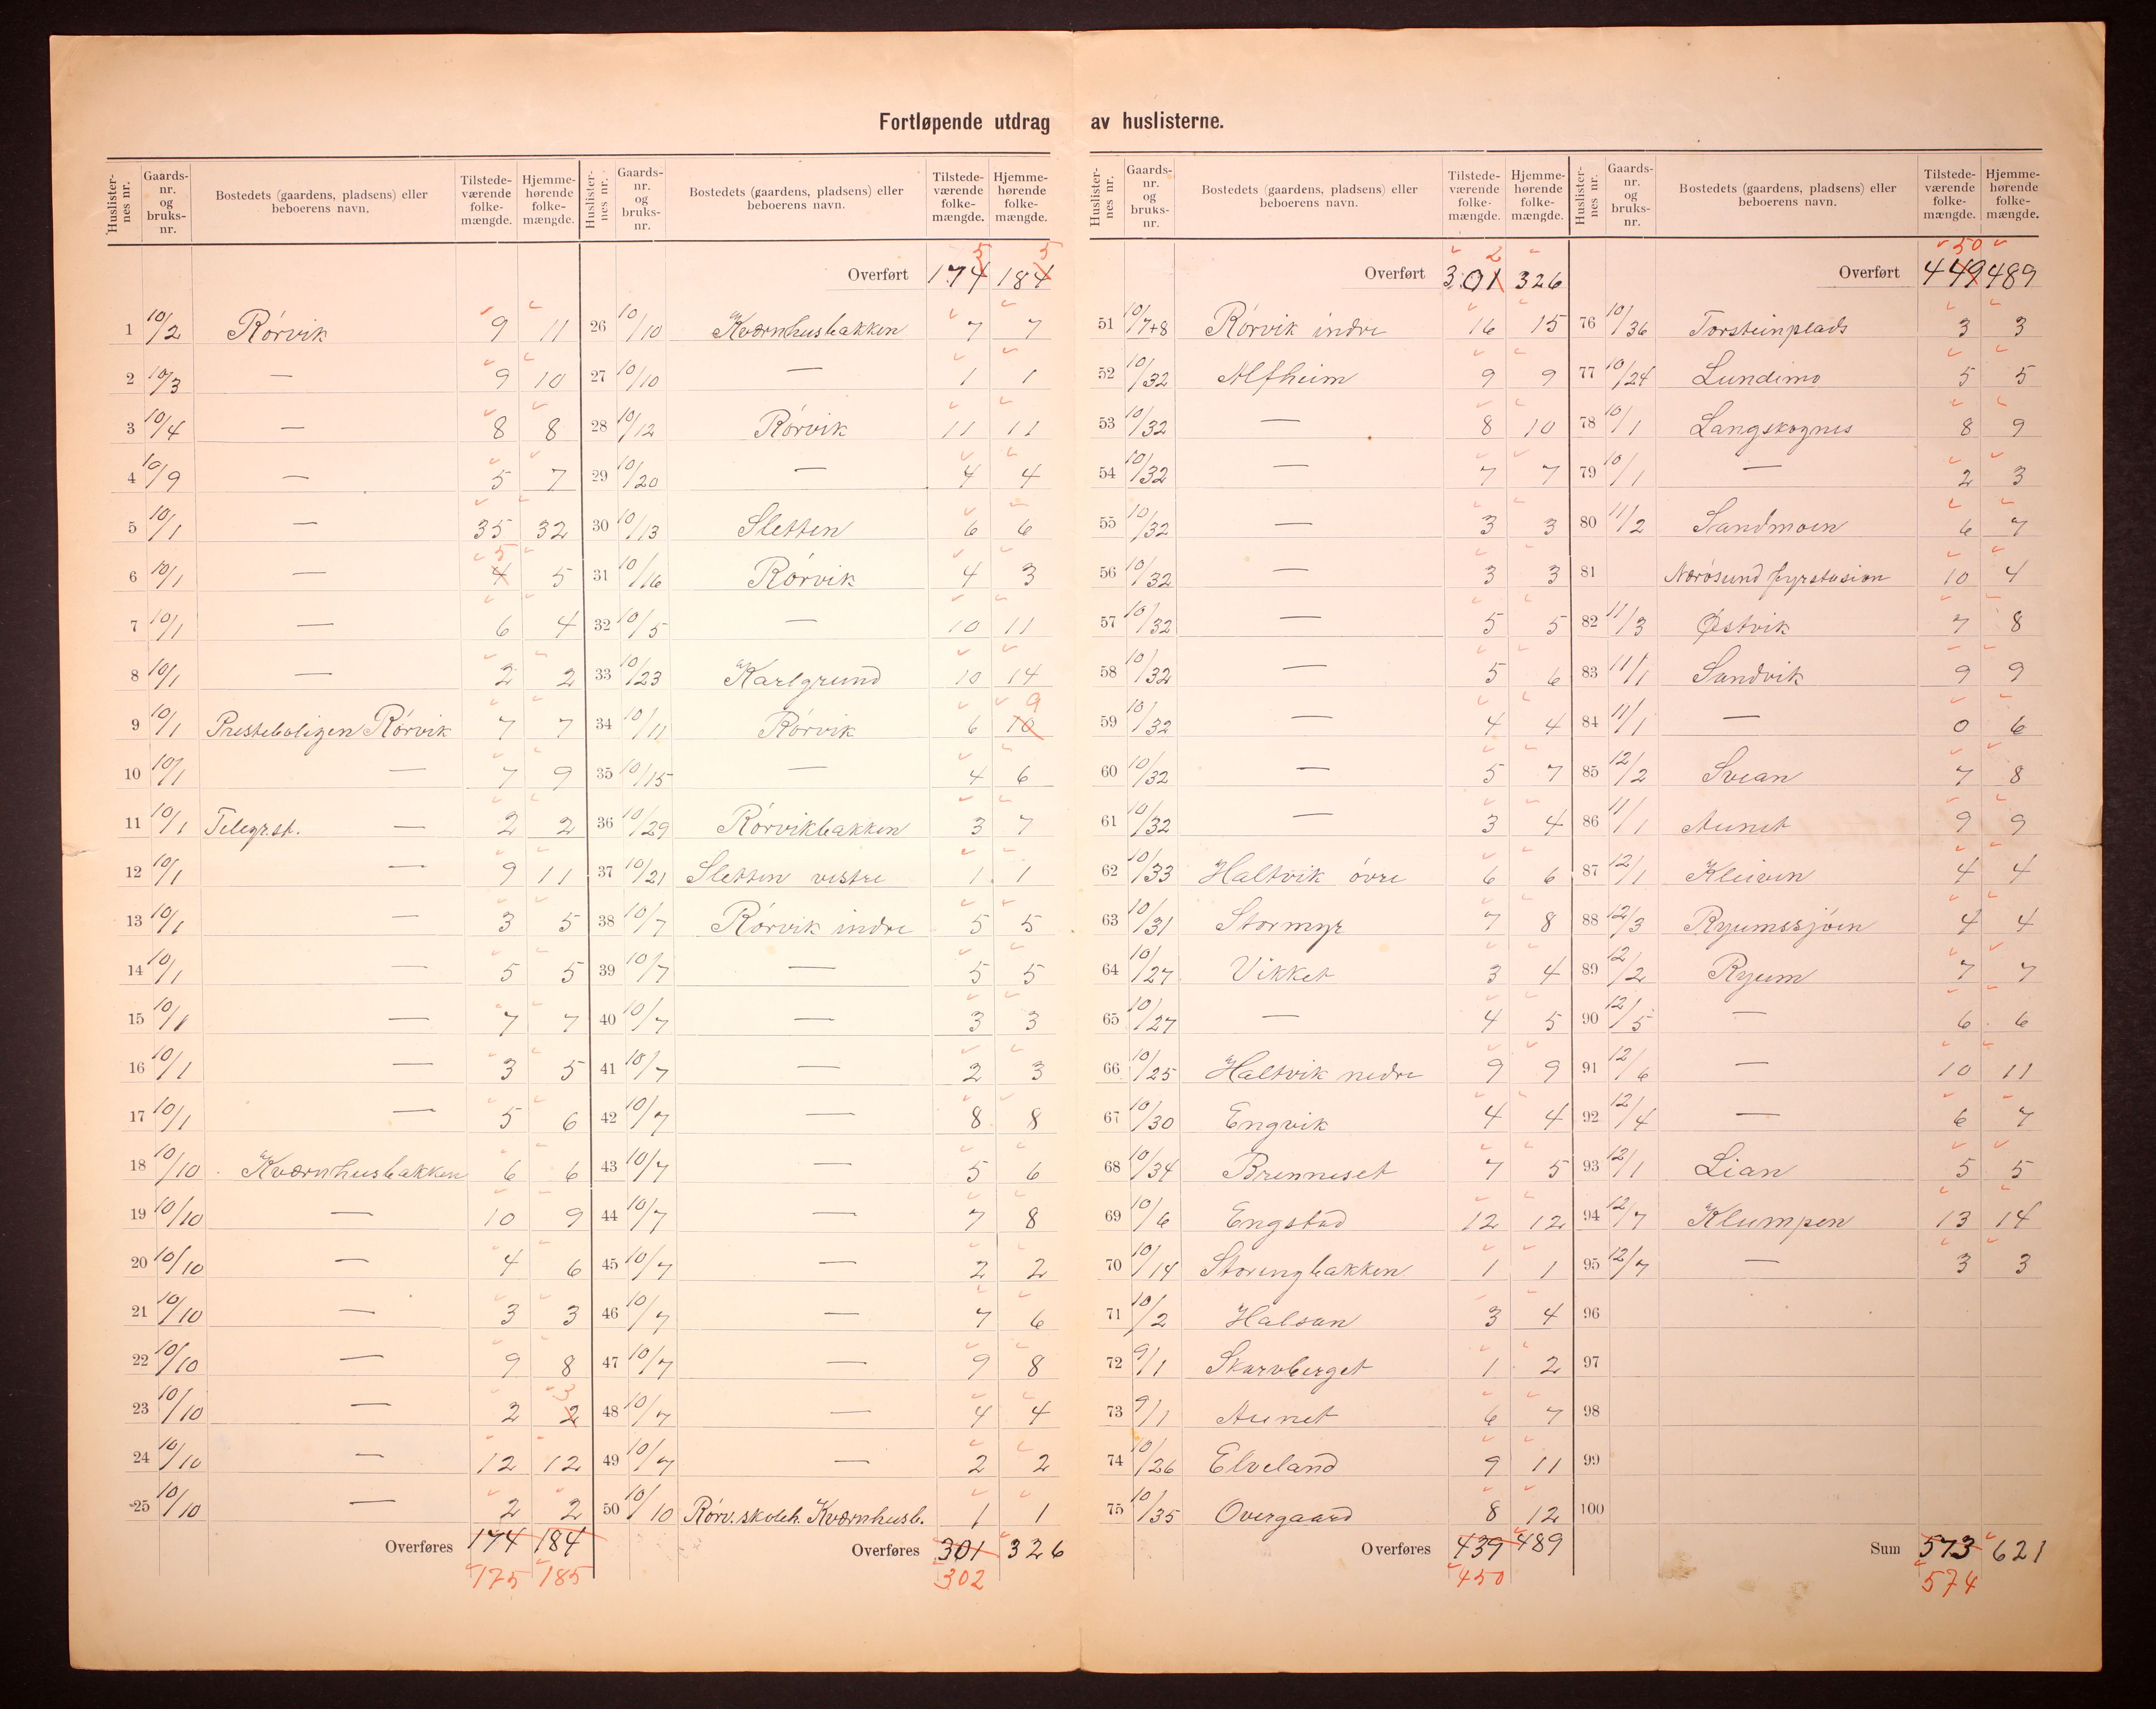 Fortløpende utdrag av huslisterne.
Huslister-nes nr. Gaards-nr. og bruks-nr. Bostedets (gaardens, pladsens) eller beboerens navn. Tilstede-værende folke-mængde. Hjemme-hørende folke-mængde.
1 10/2 Rörvik 9 11
2 10/3 — 9 10
3 10/4 — 8 8
4 10/9 — 5 7
5 10/1 — 35 32
6 10/1 — 4 5 5
7 10/1 — 6 4
8 10/1 — 2 2
9 10/1 Presteboligen Rörvik 7 7
10 10/1 — 7 9
11 10/1 Telegr.st. — 2 2
12 10/1 — 9 11
13 10/1 — 3 5
14 10/1 — 5 5
15 10/1 — 7 7
16 10/1 — 3 5
17 10/1 — 5 6
18 10/10 Kværnhusbakken 6 6
19 10/10 — 10 9
20 10/10 — 4 6
21 10/10 — 3 3
22 10/10 — 9 8
23 10/10 — 2 2 3
24 10/10 — 12 12
25 10/10 — 2 2
Overføres 174 184
175 185
Huslister-nes nr. Gaards-nr. og bruks-nr. Bostedets (gaardens, pladsens) eller beboerens navn. Tilstede-værende folke-mængde. Hjemme-hørende folke-mængde.
5 5
Overført 174 184
26 10/10 Kværnhusbakken 7 7
27 10/10 — 1 1
28 10/12 Rörvik 11 11
29 10/20 — 4 4
30 10/13 Sletten 6 6
31 10/16 Rörvik 4 3
32 10/5 — 10 11
33 10/23 Karlgrund 10 14
34 10/11 Rörvik 6 10 9
35 10/15 — 4 6
36 10/29 Rörvikbakken 3 7
37 10/21 Sletten vestre 1 1
38 10/7 Rörvik indre 5 5
39 10/7 — 5 5
40 10/7 — 3 3
41 10/7 — 2 3
42 10/7 — 8 8
43 10/7 — 5 6
44 10/7 — 7 8
45 10/7 — 2 2
46 10/7 — 7 6
47 10/7 — 9 8
48 10/7 — 4 4
49 10/7 — 2 2
50 10/10 Rörv.skoleh. Kværnhusb. 1 1
Overføres 301 326
302
Huslister-nes nr. Gaards-nr. og bruks-nr. Bostedets (gaardens, pladsens) eller beboerens navn. Tilstede-værende folke-mængde. Hjemme-hørende folke-mængde.
2
Overført 301 326
51 10/7+8 Rörvik indre 16 15
52 10/32 Alfheim 9 9
53 10/32 — 8 10
54 10/32 — 7 7
55 10/32 — 3 3
56 10/32 — 3 3
57 10/32 — 5 5
58 10/32 — 5 6
59 10/32 — 4 4
60 10/32 — 5 7
61 10/32 — 3 4
62 10/33 Haltvik övre 6 6
63 10/31 Stormyr 7 8
64 10/27 Vikket 3 4
65 10/27 — 4 5
66 10/25 Haltvik nedre 9 9
67 10/30 Engvik 4 4
68 10/34 Brenneset 7 5
69 10/6 Engstad 12 12
70 10/14 Storengbakken 1 1
71 10/2 Halsan 3 4
72 9/1 Skarvberget 1 2
73 9/1 Aunet 6 7
74 10/26 Elveland 9 11
75 10/35 Overgaard 8 12
Overføres 439 489
450
Huslister-nes nr. Gaards-nr. og bruks-nr. Bostedets (gaardens, pladsens) eller beboerens navn. Tilstede-værende folke-mængde. Hjemme-hørende folke-mængde.
50
Overført 449 489
76 10/36 Torsteinplads 3 3
77 10/24 Lundimo 5 5
78 10/1 Langskognes 8 9
79 10/1 — 2 3
80 11/2 Sandmoen 6 7
81 Nærösund fyrstasion 10 4
82 11/3 Østvik 7 8
83 11/1 Sandvik 9 9
84 11/1 — 0 6
85 12/2 Svean 7 8
86 11/1 Aunet 9 9
87 12/1 Kleiven 4 4
88 12/3 Ryumssjöen 4 4
89 12/2 Ryum 7 7
90 12/5 — 6 6
91 12/6 — 10 11
92 12/4 — 6 7
93 12/1 Lian 5 5
94 12/7 Klumpen 13 14
95 12/7 — 3 3
96
97
98
99
100
Sum 573 621
574